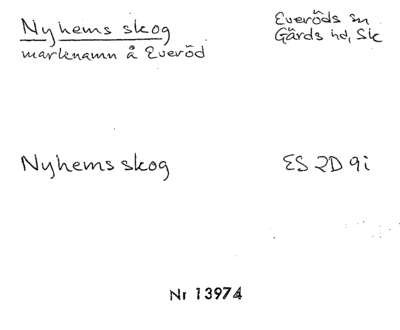 Nyhems skog
Everöds sn
Gärds hd, Sk
marknamn å Everöd
Nyhems skog
ES 2D 9i
Nr 13974